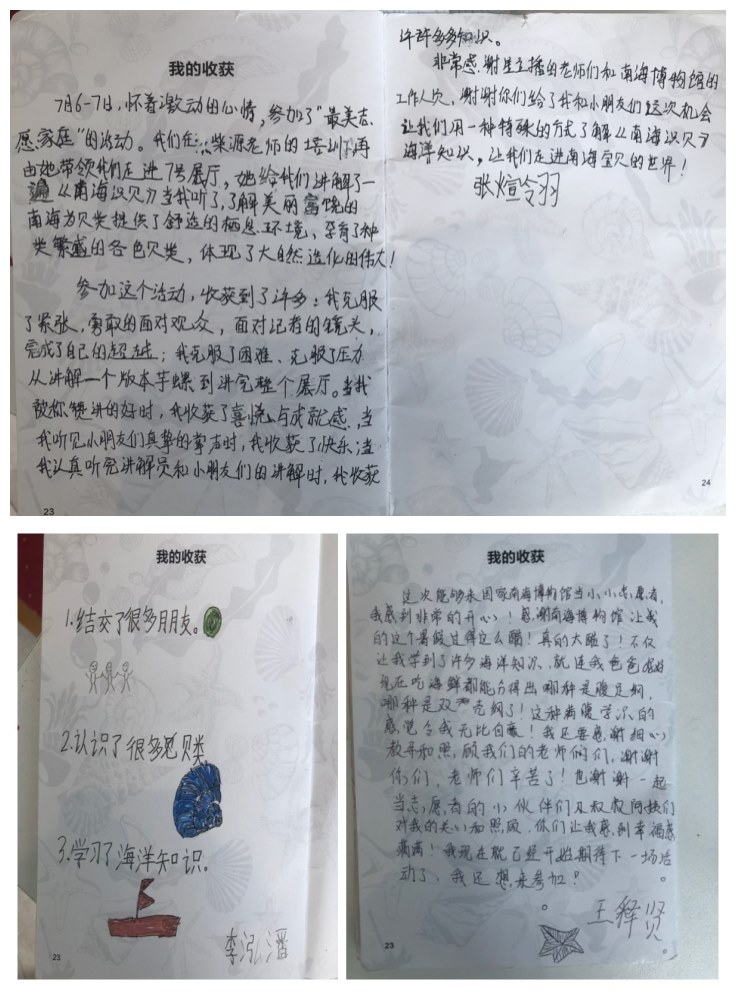 我的收获
7月6-7日,怀着激动的心情,参加了"最美志
愿家庭"的活动。我们在柴源老师的培训下再
由她带领我们走进7号展厅,她给我们讲解了一
遍《南海识贝》当我听了,了解美丽富饶的
南海为贝类提供了舒适的栖息环境、孕育了种
类繁盛的各色贝类,体现了大自然造化的伟大!
参加这个活动,收获到了许多:我克服
了紧张,勇敢的面对观众,面对记者的镜头,
完成了自己的超越;我克服了困难、克服了压力
从讲解一个版本芋螺到讲完整个展厅。当我
被称赞讲的好时,我收获了喜悦与成就感,当
我听见小朋友们真挚的掌声时,我收获了快乐;当
我认真听完讲解员和小朋友们的讲解时,我收获
23
许许多多知识。
非常感谢主播的老师们和南海博物馆的
工作人员,谢谢你们给了我和小朋友们这次机会
让我们用一种特殊的方式了解《南海识贝》
海洋知识,让我们走进南海宝贝的世界!
张煊羽
24
我的收获
1.结交了很多朋友。
2.认识了很多贝类
3.学习了海洋知识。
李泓潘
23
我的收获
这次能够来国家南海博物馆当小小志愿者,
我感到非常的开心!感谢南海博物馆让我
的这个暑假过得这么酷!真的太酷了!不仅
让我学到了许多海洋知识,就连我爸爸
现在吃海鲜都能分得出哪种是腹足纲,
哪种是双壳纲了!这种满腹学识的
感觉令我无比自豪!我还要感谢细心
教导和照顾我们的老师们,谢谢
你们,老师们辛苦了!也谢谢一起
当志愿者的小伙伴们及叔叔阿姨们
对我的关心和照顾,你们让我感到幸福感
满满!我现在就已经开始期待下一场活
动了,我还想来参加!
王释贤
23